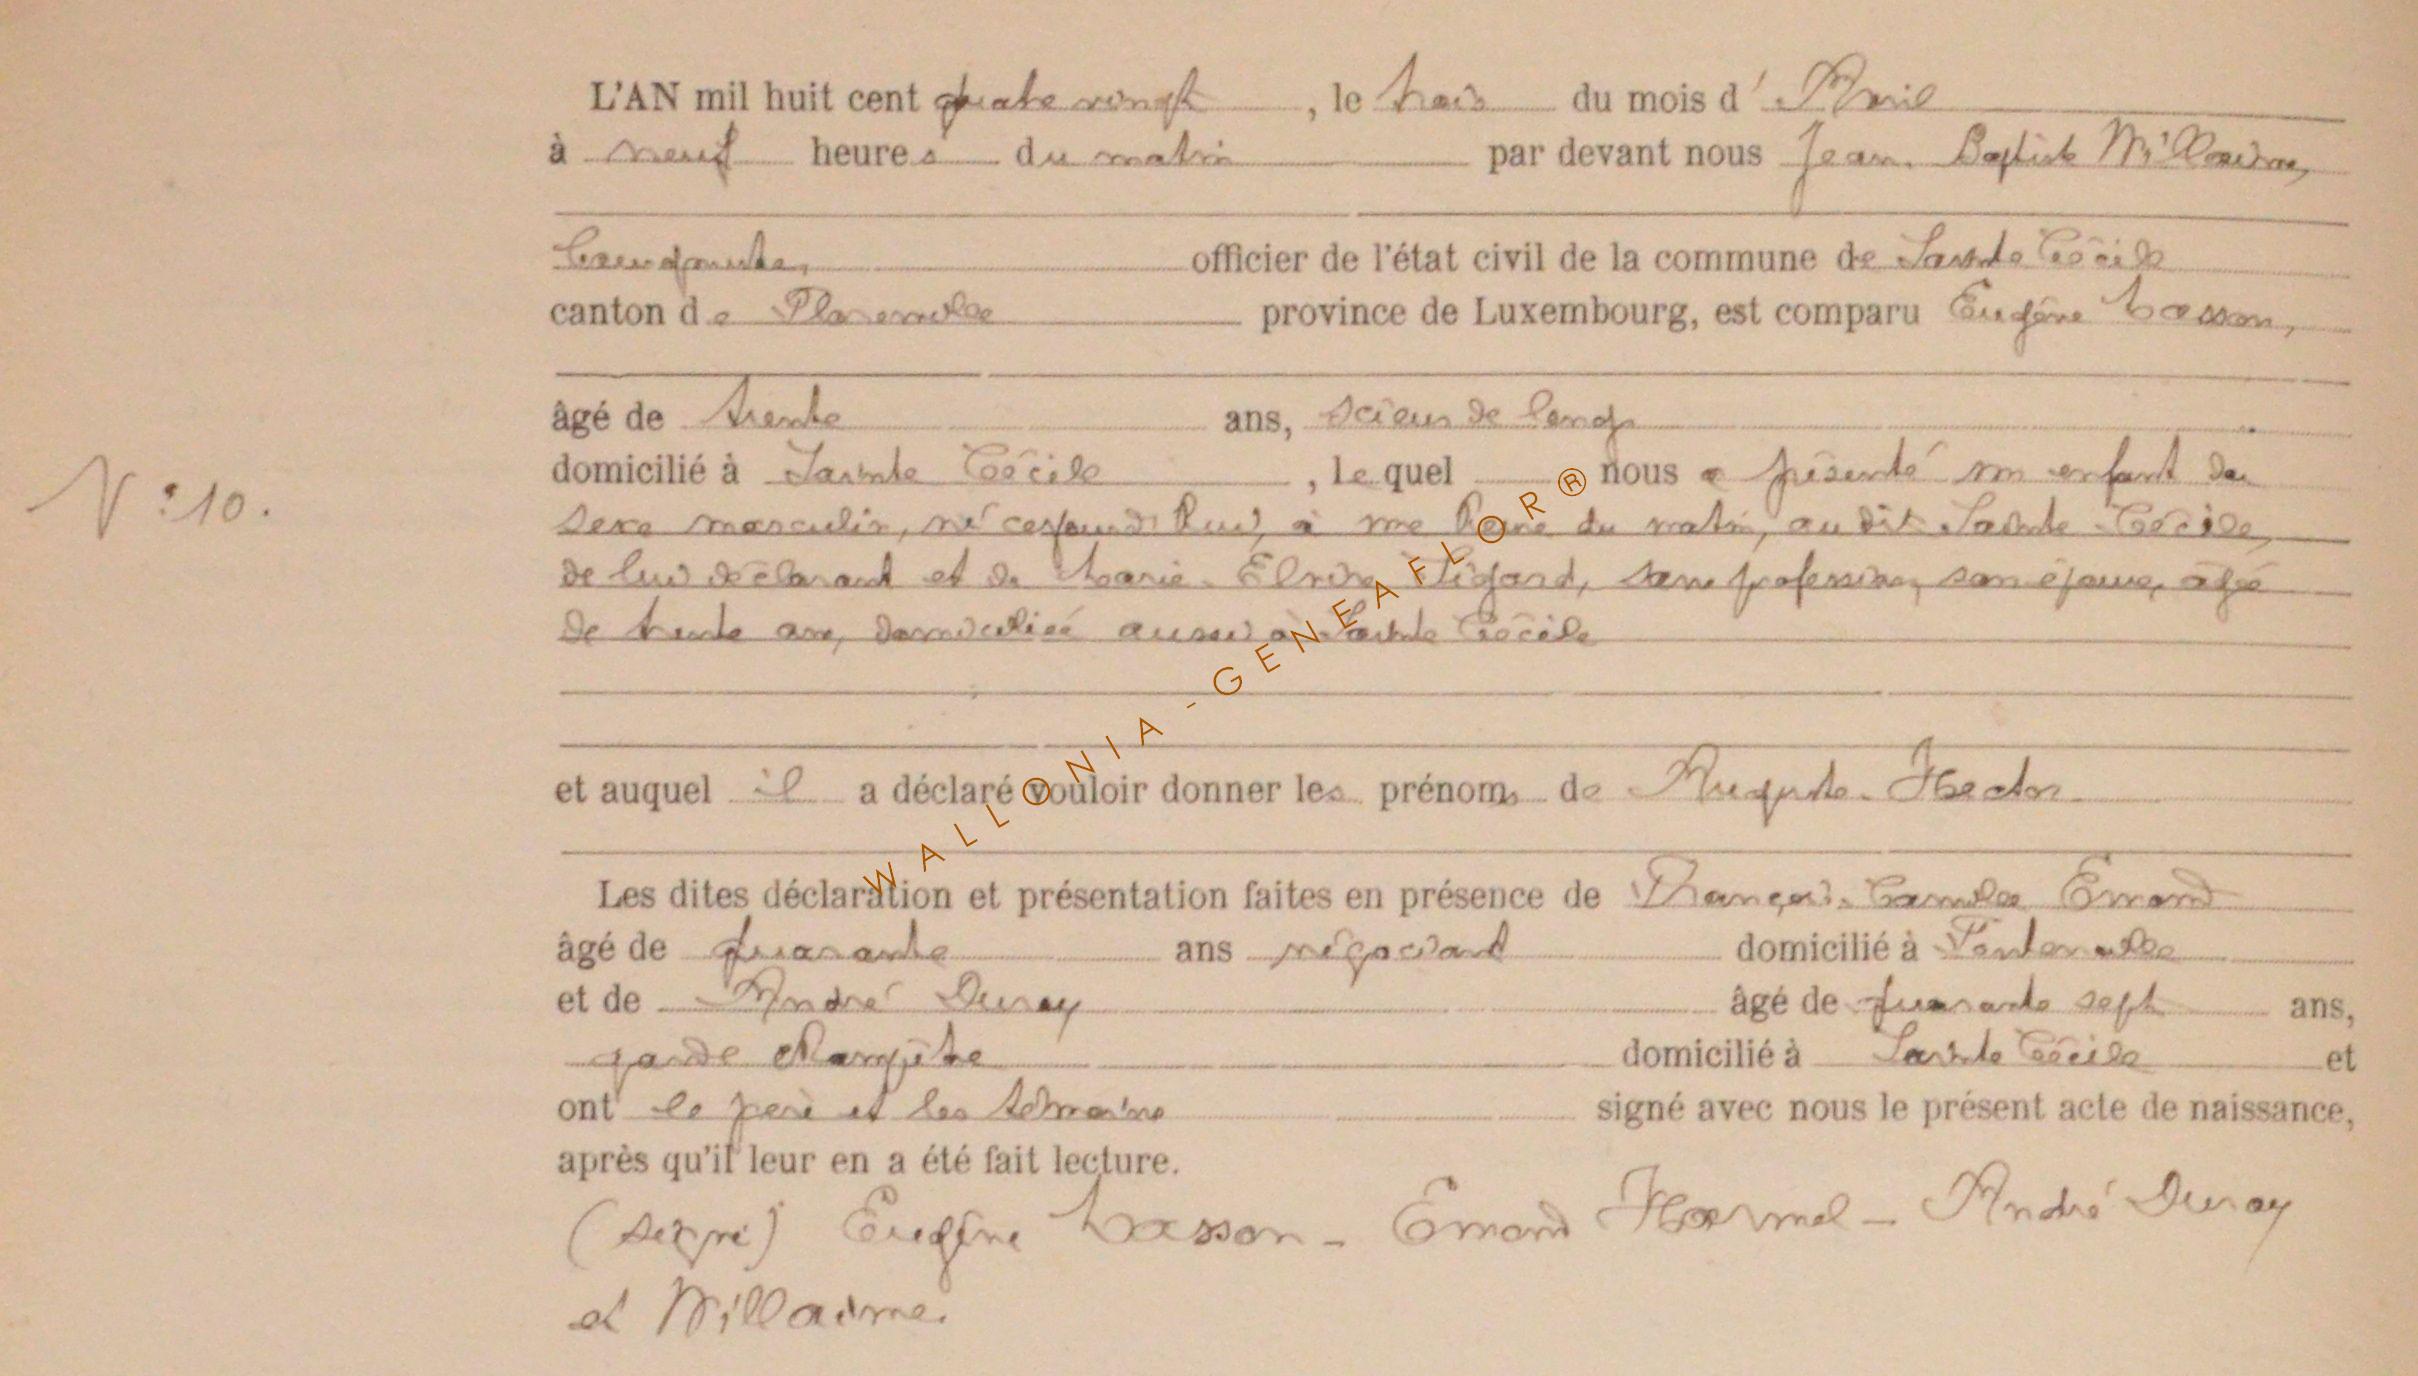 L'AN mil huit cent quatre vingt, le trois du mois d'Avril
à neuf heures du matin par devant nous Jean-Baptiste Willaime,
Bourgmestre, officier de l'état civil de la commune de Sainte Cécile
canton de Florenville province de Luxembourg, est comparu Eugène Masson,
âgé de trente ans, scieur de long
domicilié à Sainte Cécile, lequel nous a présenté un enfant du
N° 10.
sexe masculin, né cejourd'hui, à une heure du matin, au dit Sainte-Cécile,
de lui déclarant et de Marie-Elvire Ligard, sans profession, son épouse, âgée
de trente ans, domiciliée aussi à Sainte Cécile
et auquel il a déclaré vouloir donner les prénoms de Auguste-Hector
Les dites déclaration et présentation faites en présence de François-Camille Emond
âgé de quarante ans négociant domicilié à Fontenoille
et de André Duroy âgé de quarante sept ans,
garde champêtre domicilié à Sainte Cécile et
ont le père et les témoins signé avec nous le présent acte de naissance,
après qu'il leur en a été fait lecture.
(signé) Eugène Masson - Emond Harmel - André Duroy
et Willaime.
WALLONIA-GENEAFLOR®